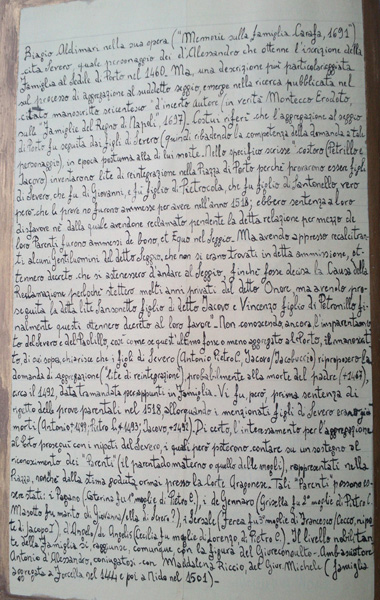 Biagio Aldimari nella sua opera ("Memorie sulla famiglia Carafa, 1691")
cita Severo, quale personaggio dei d'Alessandro che ottenne l'iscrizione della
Famiglia al sedile di Porto nel 1460. Ma, una descrizione più particolareggiata
sul processo di aggregazione al suddetto seggio, emerge nella ricerca pubblicata nel
citato manoscritto seicentesco "d'incerto autore (in verità Montecco Erodoto,
sulle Famiglie del Regno di Napoli" 1697). Costui riferì che l'aggregazione al seggio
di Porto fu seguita dai figli di Severo (quindi ribadendo la competenza della domanda a tale
personaggio), in epoca postuma alla di lui morte. Nello specifico scrisse "costoro (Petrillo e
Jacovo) inventarono lite di reintegrazione nella Piazza di Porto perché provarono essere figli
di Severo, che fu di Giovanni, e fu figlio di Pietrocola, che fu figlio di Santonello, vero
però che le prove non furono ammesse per avere nell'anno 1518; ebbero sentenza a loro
disfavore né dalla quale avendone reclamato pendente la detta relazione per mezzo de
loro Parenti furono ammessi de bono, et Equo nel Seggio. Ma avendo appresso recalcitra-
ti alcuni Gentiluomini del detto Seggio, che non si erano trovati in detta ammissione, ot-
tennero decreto che si astenessero d'andare al Seggio, finché fosse decisa la Causa della
Reclamazione perloché stettero molti anni privati del detto Onore, ma avendo pro-
seguita la detta lite Sansonetto figlio di detto Jacovo e Vincenzo figlio di Petronillo fi-
nalmente questi ottennero decreto al loro favore". Non conoscendo, ancora l'imparentamen-
to del Severo e del Paolillo, così come se quest'ultimo fosse o meno aggregato al Porto, il manoscrit-
to, di cui sopra, chiarisce che i figli di Severo (Antonio, Pietro C., Jacovo/Jacobuccio) riproposero la
domanda di aggregazione ("lite di reintegrazione), probabilmente alla morte del padre (+1467),
circa il 1492, data tramandata per appunti in Famiglia. Vi fu, però, prima sentenza di
rigetto delle prove parentali nel 1518, allorquando i menzionati figli di Severo erano già
morti (Antonio +1499, Pietro C. +1493; Jacovo, +1492). Di certo, l'interessamento per l'aggregazione
al Porto proseguì con i nipoti del Severo, i quali però poterono, contare su un sostegno al
riconoscimento dei "Parenti" (il parentado materno o quello delle mogli), rappresentati nella
Piazza, nonché dalla stima goduta ormai presso la Corte Aragonese. Tali "Parenti" possono es-
sere stati: i Pagano (Caterina fu 1ª moglie di Pietro C.), i de Gennaro (Grisella fu 2ª moglie di Pietro C.
Masotto fu marito di Giovanna/ella di Severo), i Sersale (Ferea fu 3ª moglie di Francesco/Cecco, nipo-
ti di Jacopo I) d'Angelo/de Angelis (Cecilia fu moglie di Lorenzo di Pietro C.). Il livello nobilitan-
te della Famiglia si raggiunse, comunque con la figura del Giureconsulto-Ambasciatore
Antonio d'Alessandro, coniugatosi con Maddalena Riccio, del Giur. Michele (famiglia
aggregata a Forcella nel 1444 e poi a Nido nel 1501).-